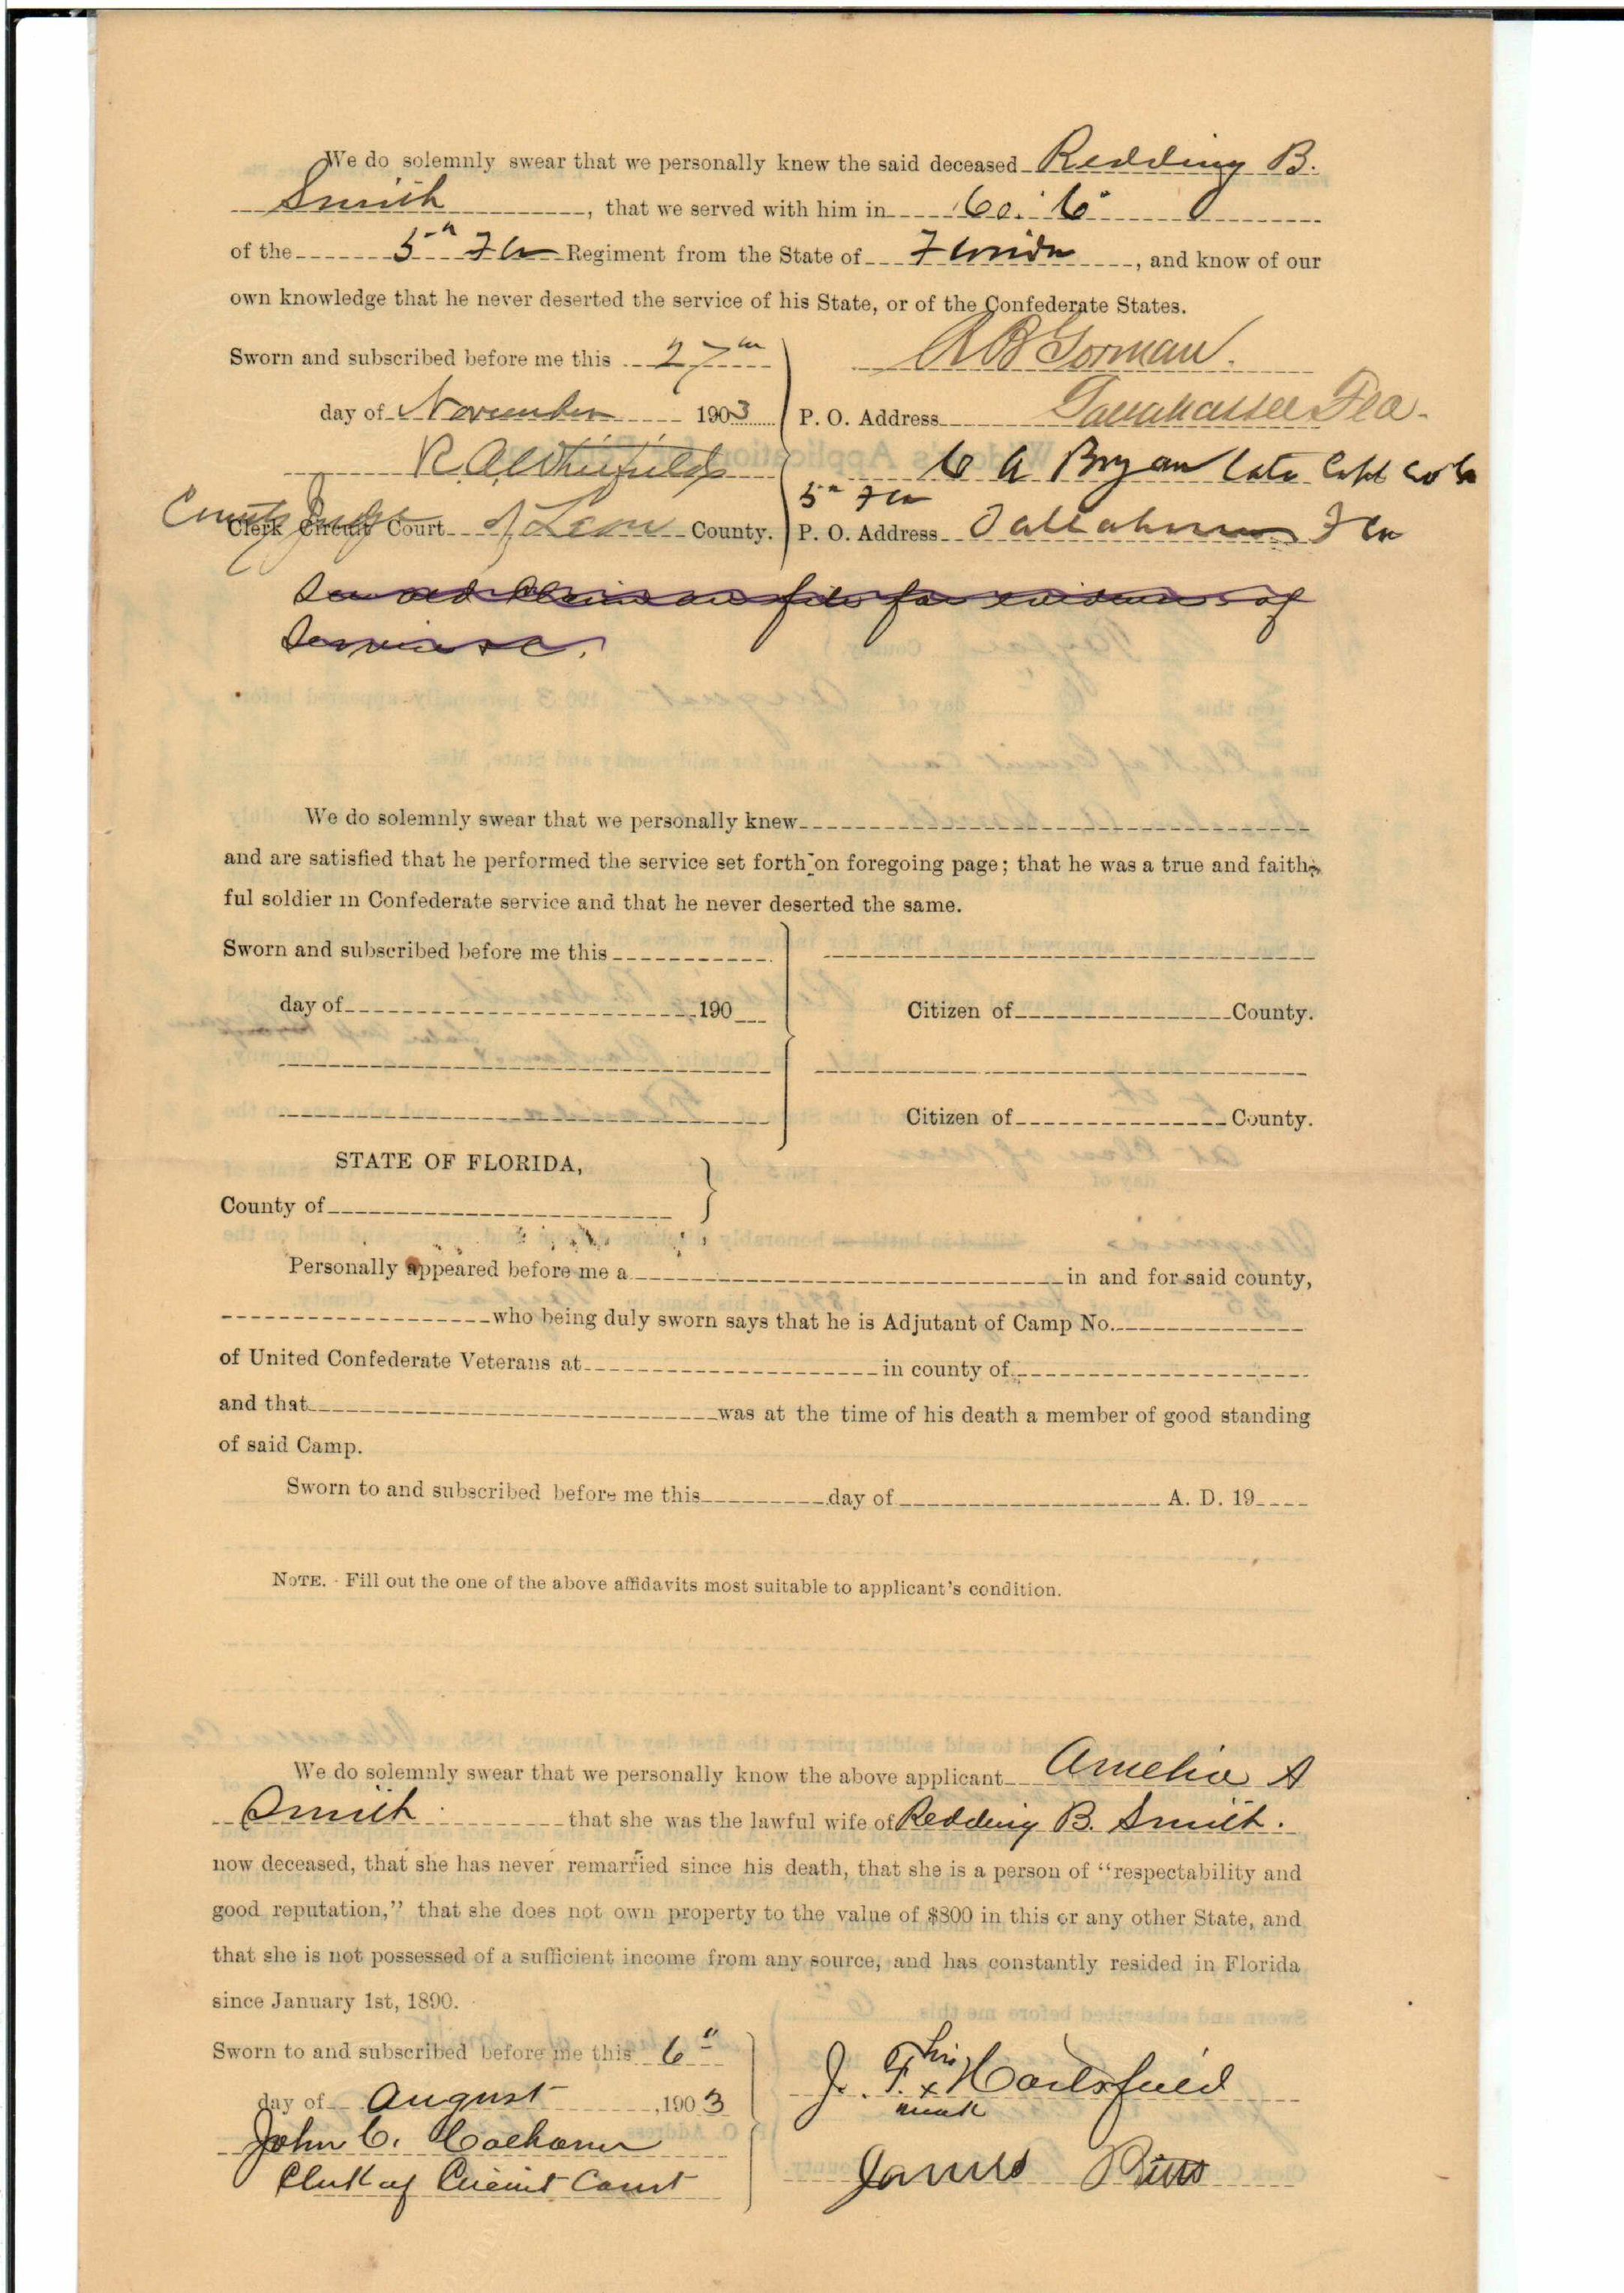 We do solemnly swear that we personally knew the said deceased Redding B.
Smith, that we served with him in Co. C
of the 5th Fla Regiment from the State of Florida, and know of our
own knowledge that he never deserted the service of his State, or of the Confederate States.
Sworn and subscribed before me this 27th
R B Gorman.
day of November 1903
P. O. Address Tallahassee Fla.
R. A. Whitfield
C A Bryan late Capt Co C
5th Fla
County Judge
Clerk Circuit Court of Leon County.
P. O. Address Tallahassee Fla
See old claim on file for evidence of
Service.
We do solemnly swear that we personally knew
and are satisfied that he performed the service set forth on foregoing page; that he was a true and faith-
ful soldier in Confederate service and that he never deserted the same.
Sworn and subscribed before me this
day of 190
Citizen of County.
Citizen of County.
STATE OF FLORIDA,
County of
Personally appeared before me a in and for said county,
who being duly sworn says that he is Adjutant of Camp No.
of United Confederate Veterans at in county of
and that was at the time of his death a member of good standing
of said Camp.
Sworn to and subscribed before me this day of A. D. 19
NOTE. - Fill out the one of the above affidavits most suitable to applicant's condition.
We do solemnly swear that we personally know the above applicant Amelia A
Smith that she was the lawful wife of Redding B. Smith.
now deceased, that she has never remarried since his death, that she is a person of "respectability and
good reputation," that she does not own property to the value of $800 in this or any other State, and
that she is not possessed of a sufficient income from any source, and has constantly resided in Florida
since January 1st, 1890.
Sworn to and subscribed before me this 6"
J. T. his x mark Hartsfield
day of August, 1903
John C. Calhoun
Clerk of Circuit Court
James Pitts